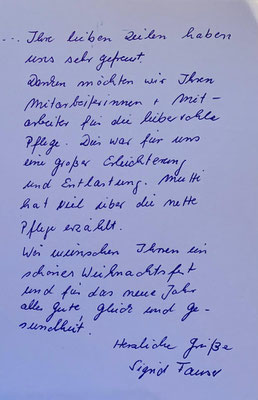 ... Ihre lieben Zeilen haben
uns sehr gefreut.
Danken möchten wir Ihren
Mitarbeiterinnen + Mit-
arbeiter für die liebevolle
Pflege. Das war für uns
eine großer Erleichterung
und Entlastung. Mutti
hat viel über die nette
Pflege erzählt.
Wir wünschen Ihnen ein
schönes Weihnachtsfest
und für das neue Jahr
alles Gute, Glück und Ge-
sundheit.
Herzliche Grüße
Sigrid